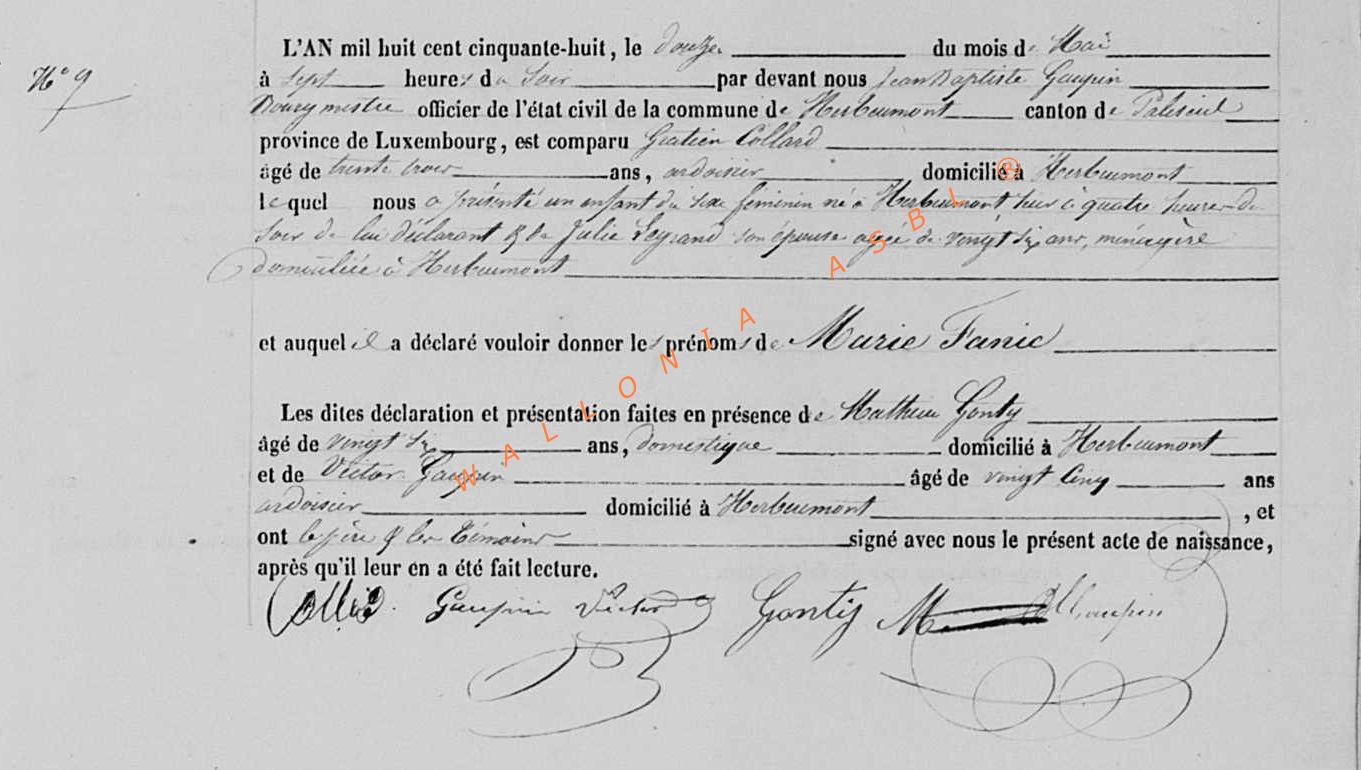 N° 9
L'AN mil huit cent cinquante-huit, le douze du mois de Mai
à sept heures du soir par devant nous Jean Baptiste Gaupin
Bourgmestre officier de l'état civil de la commune de Herbeumont canton de Paliseul
province de Luxembourg, est comparu Gratien Collard
âgé de trente trois ans, ardoisier domicilié à Herbeumont
lequel nous a présenté un enfant du sexe féminin né à Herbeumont, hier à quatre heures du
soir de lui déclarant & de Julie Legrand son épouse agée de vingt six ans, ménagère
domiciliée à Herbeumont
et auquel il a déclaré vouloir donner les prénoms de Marie Fanie
Les dites déclaration et présentation faites en présence de Mathieu Gonty
âgé de vingt six ans, domestique domicilié à Herbeumont
et de Victor Gaupin âgé de vingt cinq ans
ardoisier domicilié à Herbeumont, et
ont le père & les témoins signé avec nous le présent acte de naissance,
après qu'il leur en a été fait lecture.
Gaupin Victor Gonty M Gaupin
WALLONIA ASBL ®